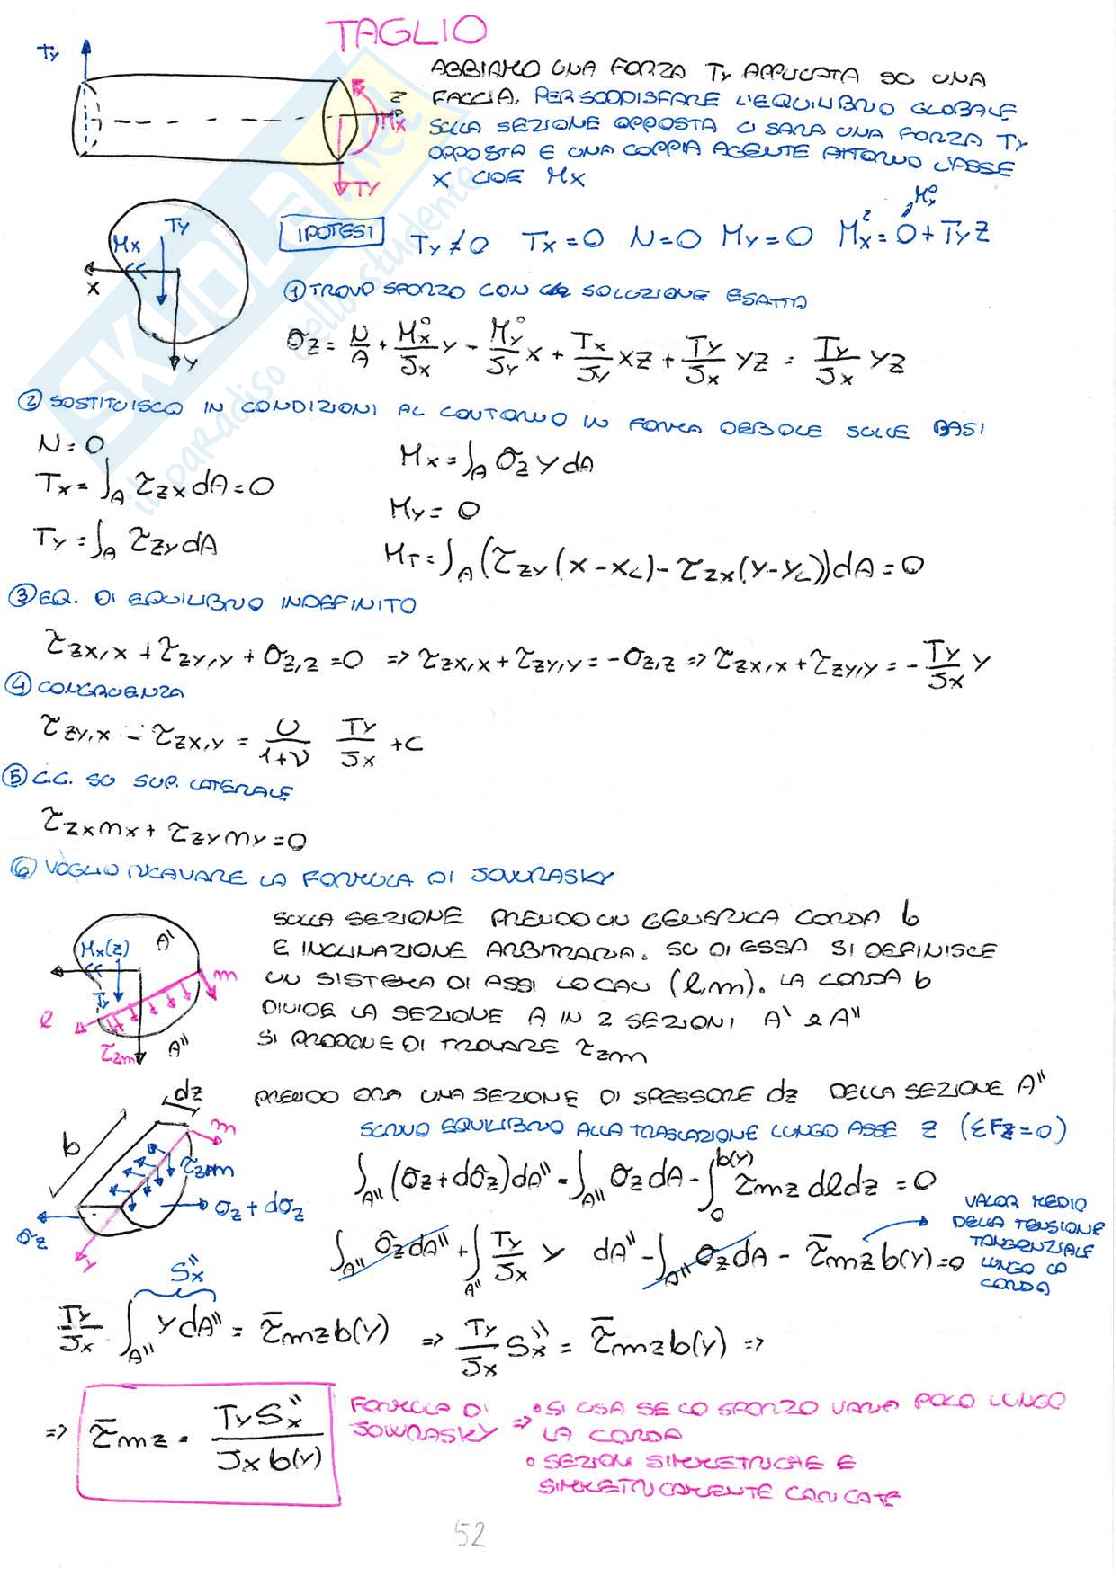 TAGLIO
Ty
ABBIAMO UNA FORZA Ty APPLICATA SU UNA
FACCIA. PER SODDISFARE L'EQUILIBRIO GLOBALE
SULLA SEZIONE OPPOSTA CI SARÀ UNA FORZA Ty
OPPOSTA E UNA COPPIA AGENTE ATTORNO L'ASSE
X CIOÈ Mx
z
Mx
Ty
Ty
Mx
x
y
IPOTESI Ty ≠ 0 Tx = 0 N = 0 My = 0 Mx^z = 0 + Ty z
Mx^0
① TROVO SFORZO CON SOLUZIONE ESATTA
σz = N/A + Mx^0/Jx y - My^0/Jy x + Tx/Jy xz + Ty/Jx yz = Ty/Jx yz
② SOSTITUISCO IN CONDIZIONI AL CONTORNO IN FORMA DEBOLE SULLE BASI
N = 0
Tx = ∫A τzx dA = 0
Ty = ∫A τzy dA
Mx = ∫A σz y dA
My = 0
MT = ∫A (τzy (x - xc) - τzx (y - yc)) dA = 0
③ EQ. DI EQUILIBRIO INDEFINITO
τzx,x + τzy,y + σz,z = 0 => τzx,x + τzy,y = -σz,z => τzx,x + τzy,y = - Ty/Jx y
④ CONGRUENZA
τzy,x - τzx,y = υ/1+υ Ty/Jx + c
⑤ C.C. SU SUP. LATERALE
τzx mx + τzy my = 0
⑥ VOGLIO RICAVARE LA FORMULA DI JOURASKY
SULLA SEZIONE PRENDO UN GENERICA CORDA b
E INCLINAZIONE ARBITRARIA. SU DI ESSA SI DEFINISCE
UN SISTEMA DI ASSI LOCALI (l,m). LA CORDA b
DIVIDE LA SEZIONE A IN 2 SEZIONI A' e A''
SI PROPONE DI TROVARE τzm
Mx(z)
A'
m
Ty
l
τzm
A''
PRENDO ORA UNA SEZIONE DI SPESSORE dz DELLA SEZIONE A''
SCRIVO EQUILIBRIO ALLA TRASLAZIONE LUNGO ASSE z (ΣFz = 0)
dz
b
m
τzm
σz + dσz
σz
l
∫A'' (σz + dσz) dA'' - ∫A'' σz dA - ∫0^b(y) τmz dl dz = 0
∫A'' σz dA'' + ∫A'' Ty/Jx y dA'' - ∫A'' σz dA - τ̄mz b(y) = 0
VALOR MEDIO
DELLA TENSIONE
TANGENZIALE
LUNGO LA
CORDA
Sx''
Ty/Jx ∫A'' y dA'' = τ̄mz b(y) => Ty/Jx Sx'' = τ̄mz b(y) =>
=> τ̄mz = Ty Sx''/Jx b(y)
FORMULA DI
JOURASKY =>
• SI USA SE LO SFORZO VARIA POCO LUNGO
LA CORDA
• SEZIONI SIMMETRICHE E
SIMMETRICAMENTE CARICATE
52
SKUOLA.net
il paradiso dello studente